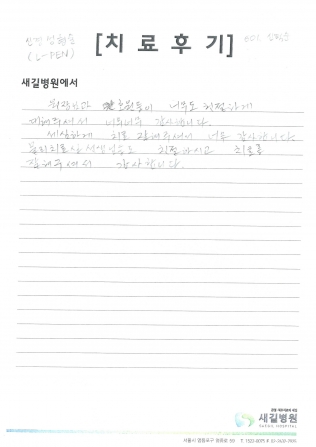 신경성형술
(L-PEN)
[치료후기]
새길병원에서
원장님과 간호원들이 너무도 친절하게
대해주셔서 너무너무 감사합니다.
세심하게 치료 잘해주셔서 너무 감사합니다
물리치료실 선생님들도 친절하시고 치료를
잘해주셔서 감사합니다.
새길병원
SAEGIL HOSPITAL